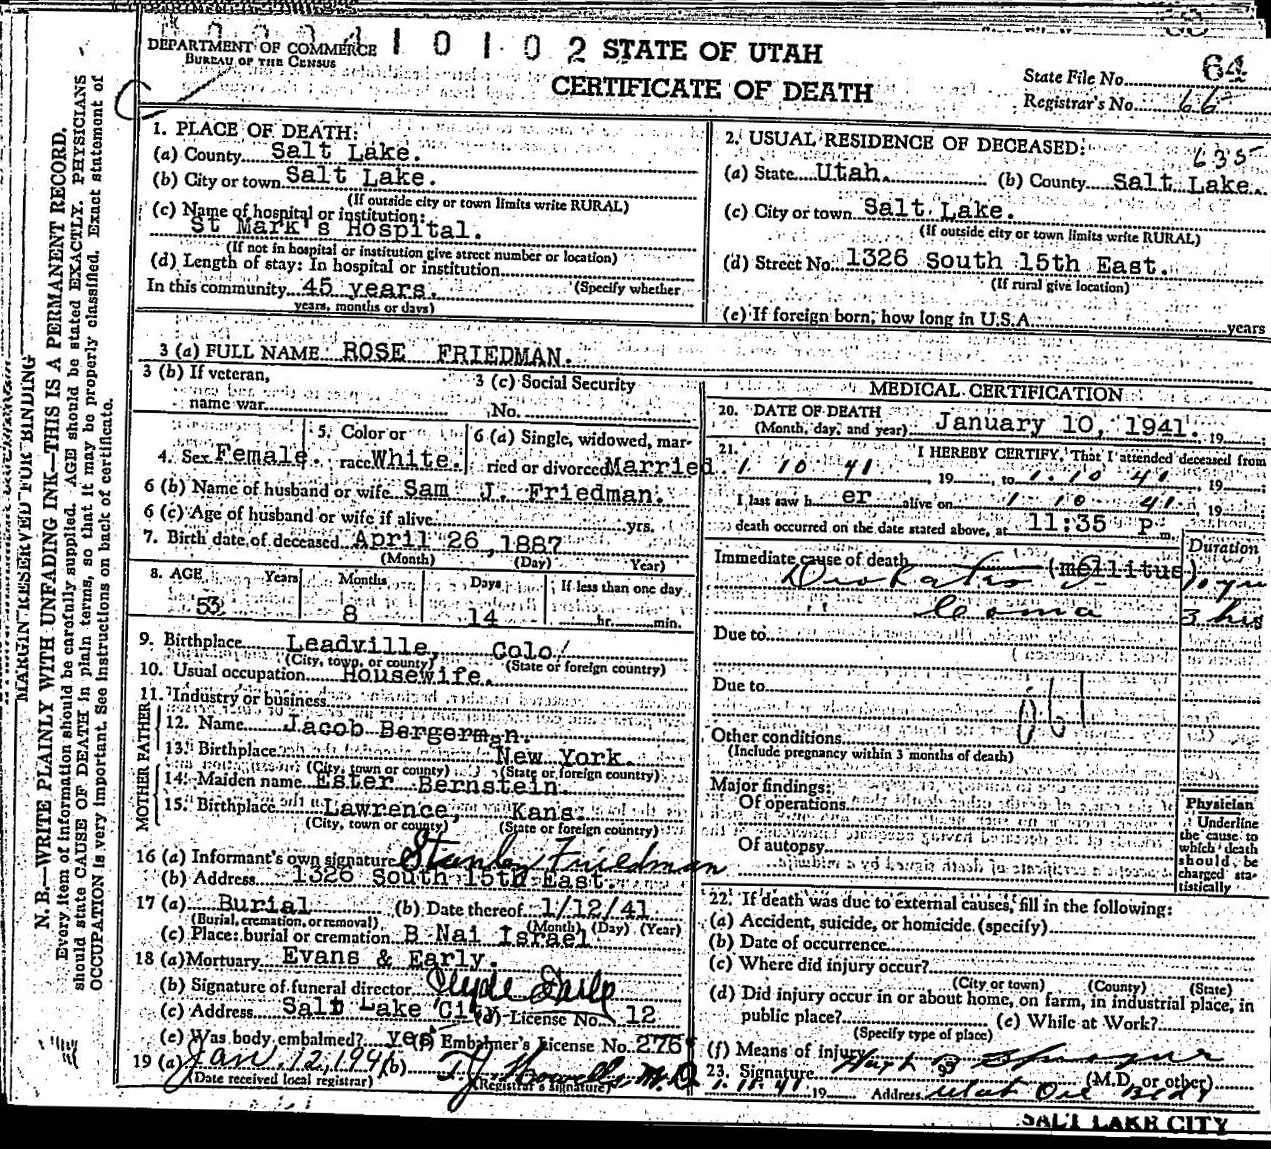 DEPARTMENT OF COMMERCE
BUREAU OF THE CENSUS
1 0 1 0 2 STATE OF UTAH
CERTIFICATE OF DEATH
State File No. 64
Registrar's No. 66
MARGIN RESERVED FOR BINDING
N. B.—WRITE PLAINLY WITH UNFADING INK—THIS IS A PERMANENT RECORD.
Every item of information should be carefully supplied. AGE should be stated EXACTLY. PHYSICIANS
should state CAUSE OF DEATH in plain terms, so that it may be properly classified. Exact statement of
OCCUPATION is very important. See instructions on back of certificate.
1. PLACE OF DEATH:
(a) County Salt Lake.
(b) City or town Salt Lake.
(If outside city or town limits write RURAL)
(c) Name of hospital or institution:
St Mark's Hospital.
(If not in hospital or institution give street number or location)
(d) Length of stay: In hospital or institution
In this community 45 years. (Specify whether
years, months or days)
2. USUAL RESIDENCE OF DECEASED:
635
(a) State Utah. (b) County Salt Lake.
(c) City or town Salt Lake.
(If outside city or town limits write RURAL)
(d) Street No. 1326 South 15th East.
(If rural give location)
(e) If foreign born, how long in U.S.A. years
3 (a) FULL NAME ROSE FRIEDMAN.
3 (b) If veteran,
name war
3 (c) Social Security
No.
4. Sex Female. 5. Color or
race White. 6 (a) Single, widowed, mar-
ried or divorced Married
6 (b) Name of husband or wife Sam J. Friedman.
6 (c) Age of husband or wife if alive yrs.
7. Birth date of deceased April 26, 1887
(Month) (Day) Year)
8. AGE Years Months Days If less than one day
53 8 14 hr. min.
9. Birthplace Leadville, Colo
(City, town, or county) (State or foreign country)
10. Usual occupation Housewife.
11. Industry or business
FATHER
12. Name Jacob Bergerman.
13. Birthplace New York.
(City, town or county) (State or foreign country)
MOTHER
14. Maiden name Ester Bernstein.
15. Birthplace Lawrence, Kans.
(City, town or county) (State or foreign country)
16 (a) Informant's own signature Stanley Friedman
(b) Address 1326 South 15th East.
17 (a) Burial (b) Date thereof 1/12/41
(Burial, cremation, or removal) (Month) (Day) (Year)
(c) Place: burial or cremation B Nai Israel
18 (a) Mortuary Evans & Early.
(b) Signature of funeral director Clyde Early
(c) Address Salt Lake City (d) License No. 12
(e) Was body embalmed? yes (f) Embalmer's License No. 276
19 (a) Jan. 12, 1941 (b) M.D.
(Date received local registrar) (Registrar's signature)
MEDICAL CERTIFICATION
20. DATE OF DEATH
(Month, day, and year) January 10, 1941. 19
21. I HEREBY CERTIFY, That I attended deceased from
1 10 41, 19 , to 1. 10 41, 19 ;
I last saw h er alive on 1 10 41, 19 ;
death occurred on the date stated above, at 11:35 P m.
Duration
Immediate cause of death (mellitus)
Diabetes 10 yrs
Coma 3 hrs
Due to
Due to
061
Other conditions
(Include pregnancy within 3 months of death)
Major findings:
Of operations
Of autopsy
Physician
Underline
the cause to
which death
should be
charged sta-
tistically
22. If death was due to external causes, fill in the following:
(a) Accident, suicide, or homicide (specify)
(b) Date of occurrence
(c) Where did injury occur?
(City or town) (County) (State)
(d) Did injury occur in or about home, on farm, in industrial place, in
public place? (e) While at Work?
(Specify type of place)
(f) Means of injury
23. Signature
(M.D. or other)
1. 11. 41 19 Address Utah Oil Bldg
SALT LAKE CITY